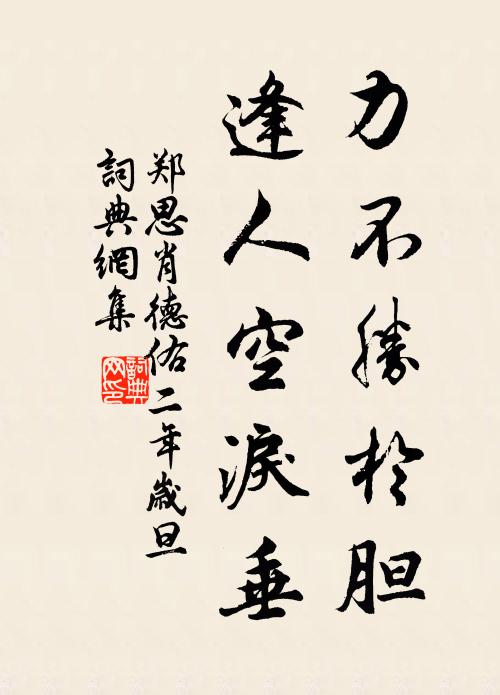 力不勝於胆
逢人空淚垂
郑思肖德佑二年歲旦
詞典網集
詞典网印